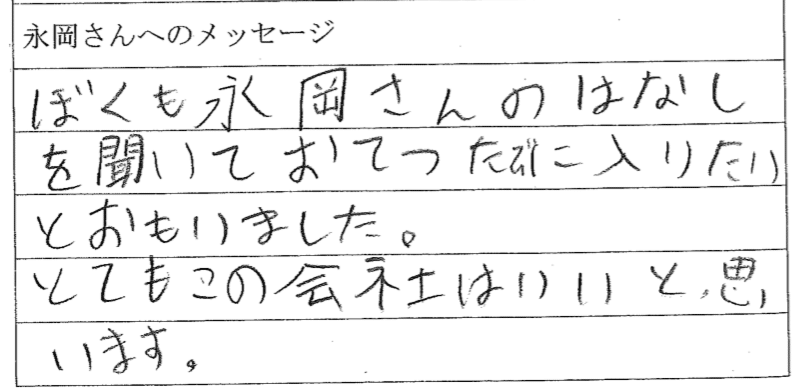 永岡さんへのメッセージ
ぼくも永岡さんのはなし
を聞いておてつたぶに入りたい
とおもいました。
とてもこの会社はいいと思
います。